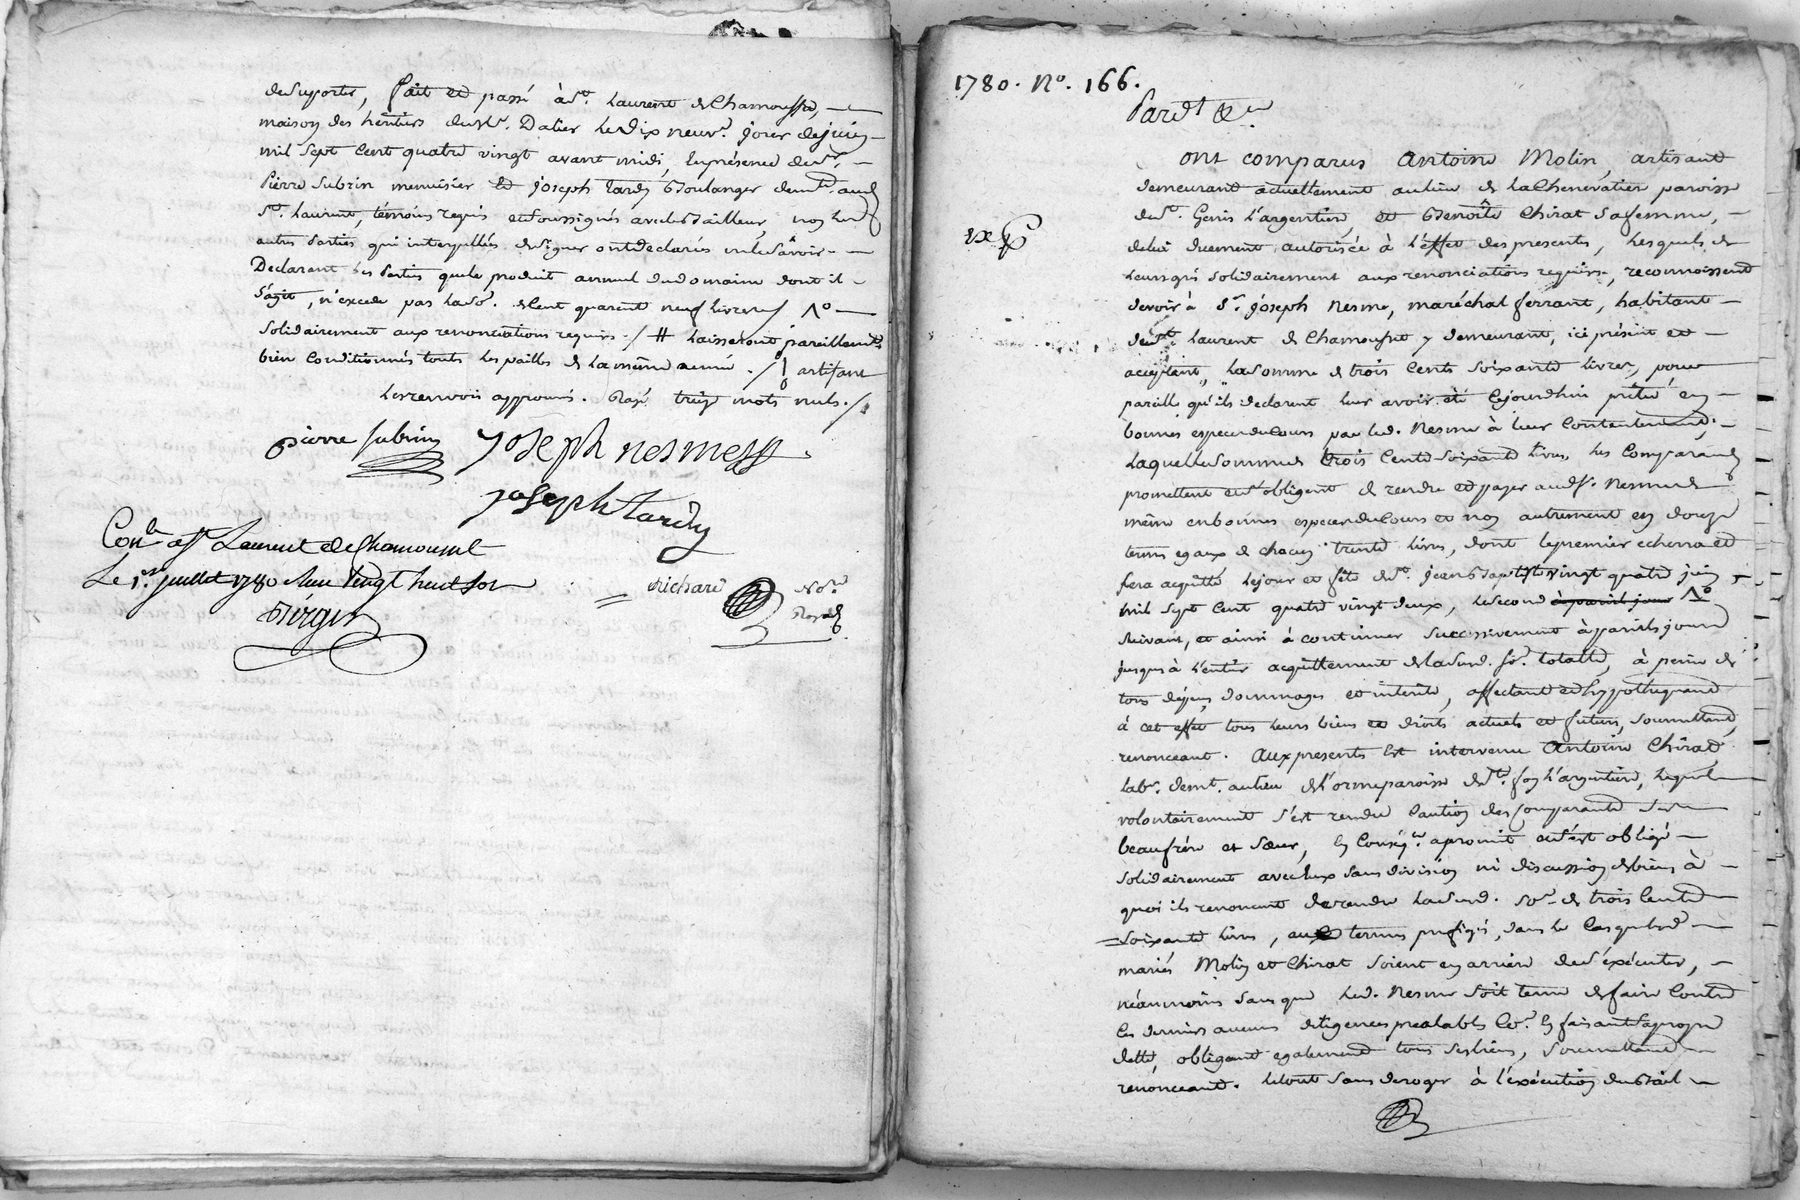 de supporter, fait et passé à St. Laurent de Chamousset,
maison des héritiers du Sr. Dalier le dix neuf. jour de juin
mil sept cent quatre vingt avant midi, en présence de Sr.
Pierre Subrin menuisier et joseph tardy Boulanger demt. aud
St. Laurent, témoins requis et soussignés avec le Bailleur, non les
autres parties qui interpellés de signer ont déclarés ne le savoir
Declarant les parties que le produit annuel du domaine dont il
s'agit, n'excede pas la so. de cent quarante neuf livres / No
solidairement aux renonciations requises / # laisseront pareillemt
bien conditionnés touts les pailles de la même année. / artisant
les renvois approuvés. Rayé treize mots nuls. /
pierre subrin joseph nesme
joseph tardy
Conlé a St Laurent de Chamousset
Le 1er juillet 1780 Reçu vingt huit sols
Richard Nore
Royal
1780. No. 166.
Pardt &a
ont comparus Antoine Molin, artisant
demeurant actuellement au lieu de la Chenevatier paroisse
de St. Genis L'argentiere, et Benoîte Chirat sa femme,
de lui duement autorisée à l'effet des presentes, lesquels de
leurs grés solidairement aux renonciations requises, reconnoissent
devoir à Sr. joseph Nesme, maréchal ferrant, habitant
de St. Laurent de Chamousset y demeurant, ici présent et
acceptant, la somme de trois cents soixante livres, pour
pareille qu'ils declarent leur avoir été cejourdhui prêtée en
bonnes especes de cours par led. Nesme à leur contentement;
laquelle somme de trois cents soixante livres, les comparants
promettent et s'obligent de rendre et payer aud Sr. Nesme de
même en bonnes especes de cours et non autrement en douze
termes egaux de chacun trente livres, dont le premier echerra et
sera acquitté le jour et fête de St. jean Baptiste vingt quatre juin
mil sept cent quatre vingt deux, le second à pareil jour No
suivant, et ainsi à continuer successivement à pareils jours
jusques à l'entier acquittement de la susd. so. totalle, à peine de
tous dépens, dommages et interêts, affectant et hypothequant
à cet effet tous leurs biens et droits actuels et futurs, soumettant,
renonceant. Aux presentes est intervenu Antoine Chirat
labr. demt. au lieu de l'orme paroisse de Ste. foy L'argentiere, lequel
volontairement s'est rendu caution des comparants ses
beaufrére et sœur, en conséqce. a promit et s'est obligé
solidairement avec eux sans division ni discussion de biens à
quoi ils renoncent de rendre la susd. so. de trois cents
soixante livres, aux termes prefigés, dans le cas que led
mariés Molin et Chirat soient en arriere de s'éxécuter,
néanmoins sans que led. Nesme soit tenu de faire contre
les derniers aucunes diligences prealables led. en faisant sa propre
dette, obligeant egalement tous ses biens, soumettant
renonceant. le tout sans deroger à l'éxécution du Bail